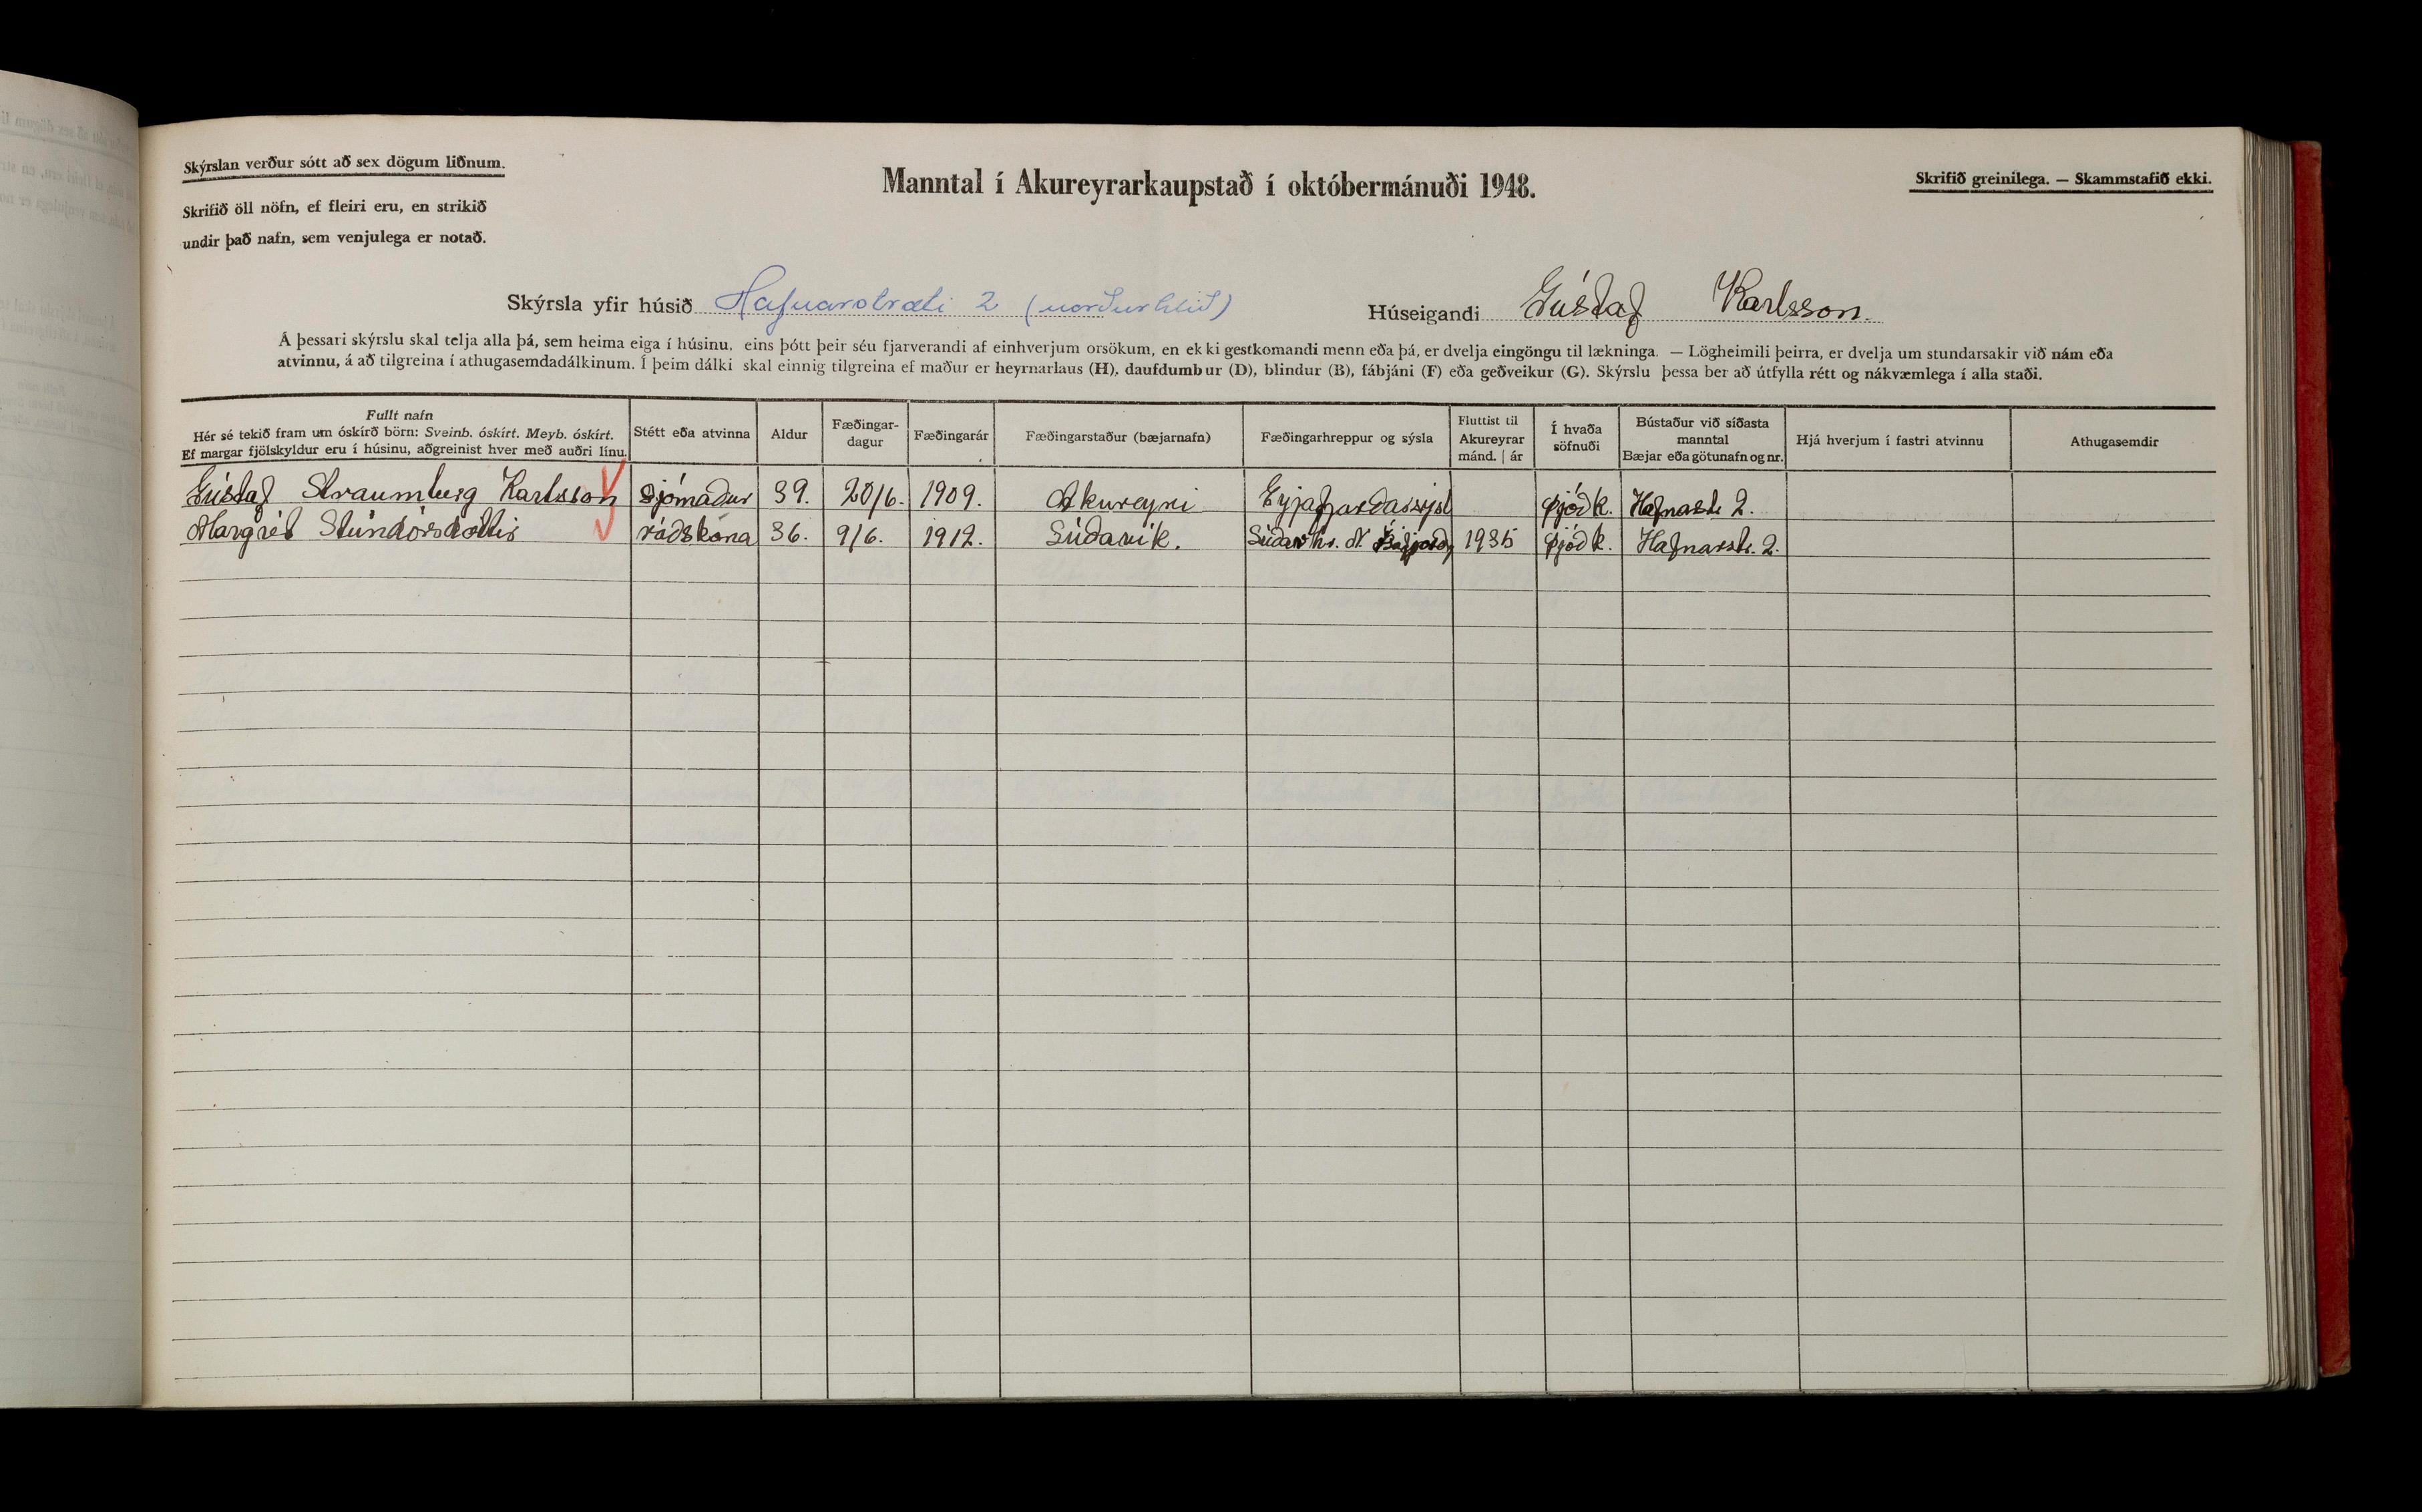 Skýrslan verður sótt að sex dögum liðnum.
Skrifið öll nöfn, ef fleiri eru, en strikið
undir það nafn, sem venjulega er notað.
Manntal í Akureyrarkaupstað í októbermánuði 1948.
Skrifið greinilega. — Skammstafið ekki.
Skýrsla yfir húsið Hafnarstræti 2 (norðurhlið) Húseigandi Gústaf Karlsson.
Á þessari skýrslu skal telja alla þá, sem heima eiga í húsinu, eins þótt þeir séu fjarverandi af einhverjum orsökum, en ekki gestkomandi menn eða þá, er dvelja eingöngu til lækninga. — Lögheimili þeirra, er dvelja um stundarsakir við nám eða
atvinnu, á að tilgreina í athugasemdadálkinum. Í þeim dálki skal einnig tilgreina ef maður er heyrnarlaus (H), daufdumbur (D), blindur (B), fábjáni (F) eða geðveikur (G). Skýrslu þessa ber að útfylla rétt og nákvæmlega í alla staði.
Fullt nafn
Hér sé tekið fram um óskírð börn: Sveinb. óskírt. Meyb. óskírt.
Ef margar fjölskyldur eru í húsinu, aðgreinist hver með auðri línu.
Stétt eða atvinna
Aldur
Fæðingar-
dagur
Fæðingarár
Fæðingarstaður (bæjarnafn)
Fæðingarhreppur og sýsla
Fluttist til
Akureyrar
mánd. | ár
Í hvaða
söfnuði
Bústaður við síðasta
manntal
Bæjar eða götunafn og nr.
Hjá hverjum í fastri atvinnu
Athugasemdir
Gústaf Straumberg Karlsson sjómaður 39. 20/6. 1909. Akureyri Eyjafjarðassýsl þjóðk. Hafnastr. 2.
Margrét Steindórsdóttir ráðskona 36. 9/6. 1912. Súðavík. Súðav hr. N. Ísafjorð, 1935 þjóðk. Hafnarstr. 2.